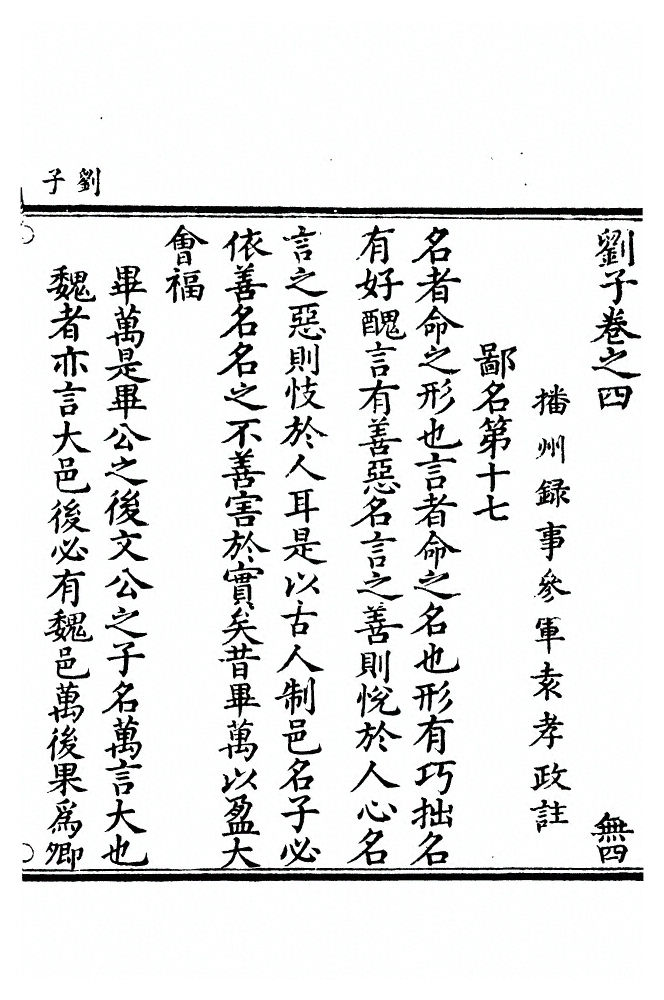 劉子
劉子卷之四
無四
播州録事參軍袁孝政註
鄙名第十七
名者命之形也言者命之名也形有巧拙名
有好醜言有善惡名言之善則悅於人心名
言之惡則忮於人耳是以古人制邑名子必
依善名名之不善害於實矣昔畢萬以盈大
會福
畢萬是畢公之後文公之子名萬言大也
魏者亦言大邑後必有魏邑萬後果爲卿